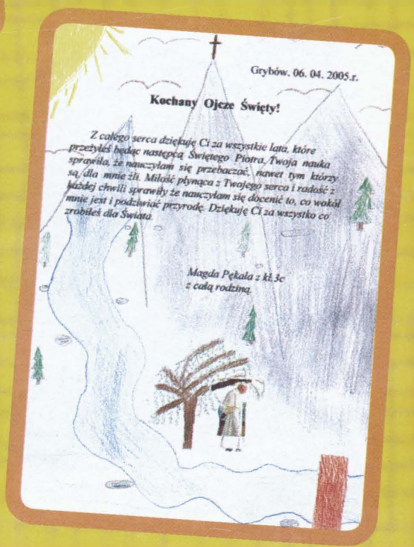 Grybów. 06. 04. 2005.r.
Kochany Ojcze Święty!
Z całego serca dziękuję Ci za wszystkie lata, które
przeżyłeś będąc następcą Świętego Piotra. Twoja nauka
sprawiła, że nauczyłam się przebaczać, nawet tym którzy
są dla mnie źli. Miłość płynąca z Twojego serca i radość z
każdej chwili sprawiły że nauczyłam się docenić to, co wokół
mnie jest i podziwiać przyrodę. Dziękuję Ci za wszystko co
zrobiłeś dla Świata.
Magda Pękala z kl.3c
z całą rodziną.